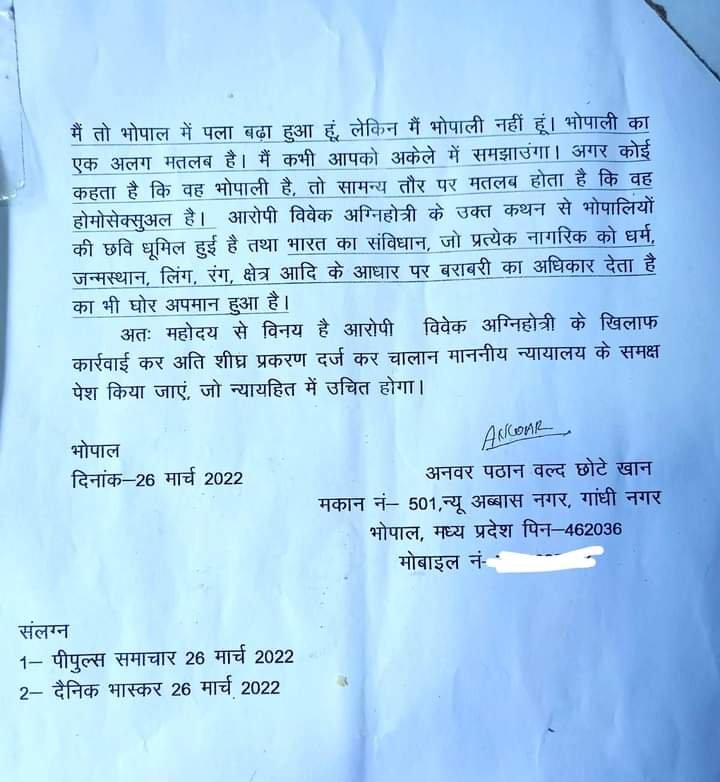 मैं तो भोपाल में पला बढ़ा हुआ हूं, लेकिन मैं भोपाली नहीं हूं। भोपाली का
एक अलग मतलब है। मैं कभी आपको अकेले में समझाउंगा। अगर कोई
कहता है कि वह भोपाली है, तो सामन्य तौर पर मतलब होता है कि वह
होमोसेक्सुअल है। आरोपी विवेक अग्निहोत्री के उक्त कथन से भोपालियों
की छवि धूमिल हुई है तथा भारत का संविधान, जो प्रत्येक नागरिक को धर्म,
जन्मस्थान, लिंग, रंग, क्षेत्र आदि के आधार पर बराबरी का अधिकार देता है
का भी घोर अपमान हुआ है।
अतः महोदय से विनय है आरोपी विवेक अग्निहोत्री के खिलाफ
कार्रवाई कर अति शीघ्र प्रकरण दर्ज कर चालान माननीय न्यायालय के समक्ष
पेश किया जाएं, जो न्यायहित में उचित होगा।
भोपाल
दिनांक–26 मार्च 2022
अनवर पठान वल्द छोटे खान
मकान नं– 501,न्यू अब्बास नगर, गांधी नगर
भोपाल, मध्य प्रदेश पिन–462036
मोबाइल नं-
संलग्न
1– पीपुल्स समाचार 26 मार्च 2022
2– दैनिक भास्कर 26 मार्च 2022